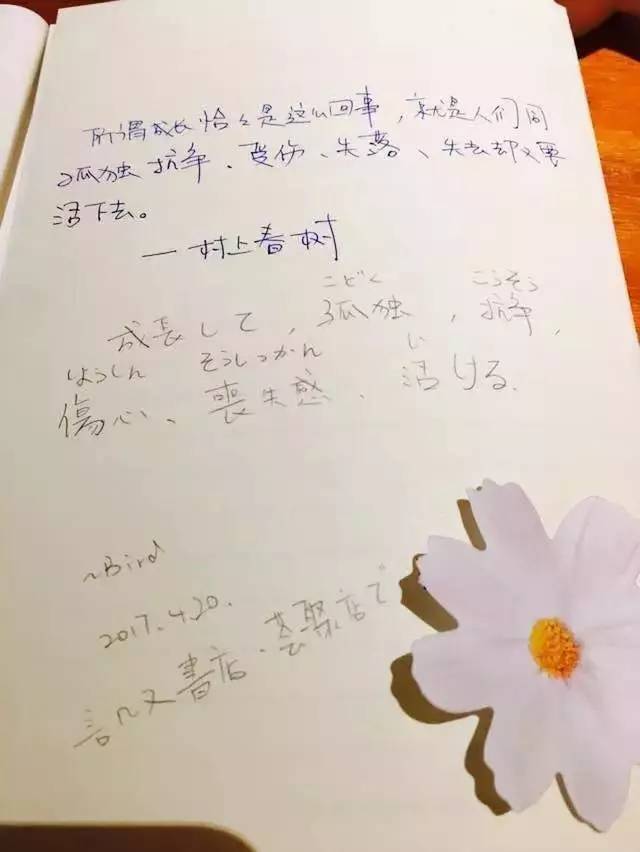 所谓成长恰々是这么回事，就是人们同
孤独抗争、受伤、失落、失去却又要
活下去。
—村上春树
こどく こうそう
成長して，孤独，抗争，
しょうしん そうしつかん い
傷心、喪失感、活ける.
~Bird
2017.4.20.
言几又書店·荟聚店で